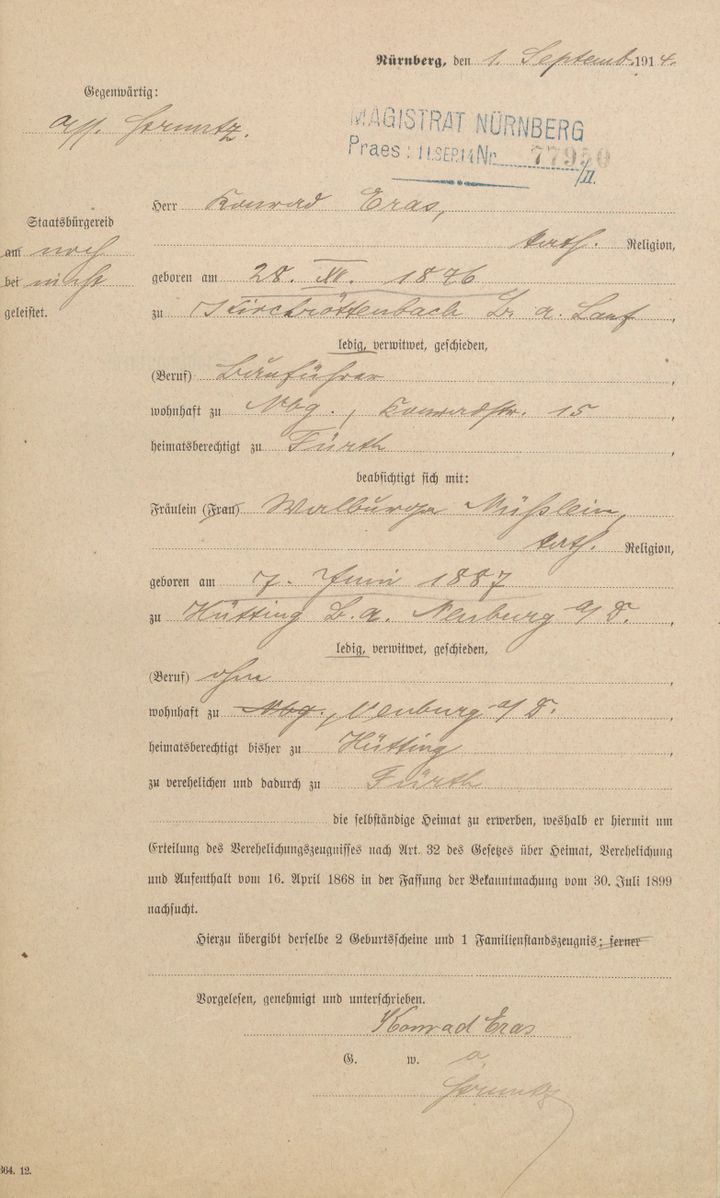 Nürnberg, den 1. Septemb. 1914.
Gegenwärtig:
MAGISTRAT NÜRNBERG
Praes: 11.SEP.14 Nr. 77950
/II.
Herr Konrad Eras,
Staatsbürgereid
am noch
kath. Religion,
bei nicht
geboren am 28. XI. 1876
geleistet.
zu Kirchröttenbach B. a. Lauf,
ledig, verwitwet, geschieden,
(Beruf) Bauführer,
wohnhaft zu Nbg., Konradstr. 15,
heimatsberechtigt zu Fürth,
beabsichtigt sich mit:
Fräulein (Frau) Walburga Nüßlein,
kath. Religion,
geboren am 7. Juni 1887
zu Hütting B. a. Neuburg a/D.,
ledig, verwitwet, geschieden,
(Beruf) ohne,
wohnhaft zu Nbg., Neuburg a/D.,
heimatsberechtigt bisher zu Hütting,
zu verehelichen und dadurch zu Fürth
die selbständige Heimat zu erwerben, weshalb er hiermit um
Erteilung des Verehelichungszeugnisses nach Art. 32 des Gesetzes über Heimat, Verehelichung
und Aufenthalt vom 16. April 1868 in der Fassung der Bekanntmachung vom 30. Juli 1899
nachsucht.
Hierzu übergibt derselbe 2 Geburtsscheine und 1 Familienstandszeugnis; ferner
Vorgelesen, genehmigt und unterschrieben.
Konrad Eras
G. w. o.
364. 12.